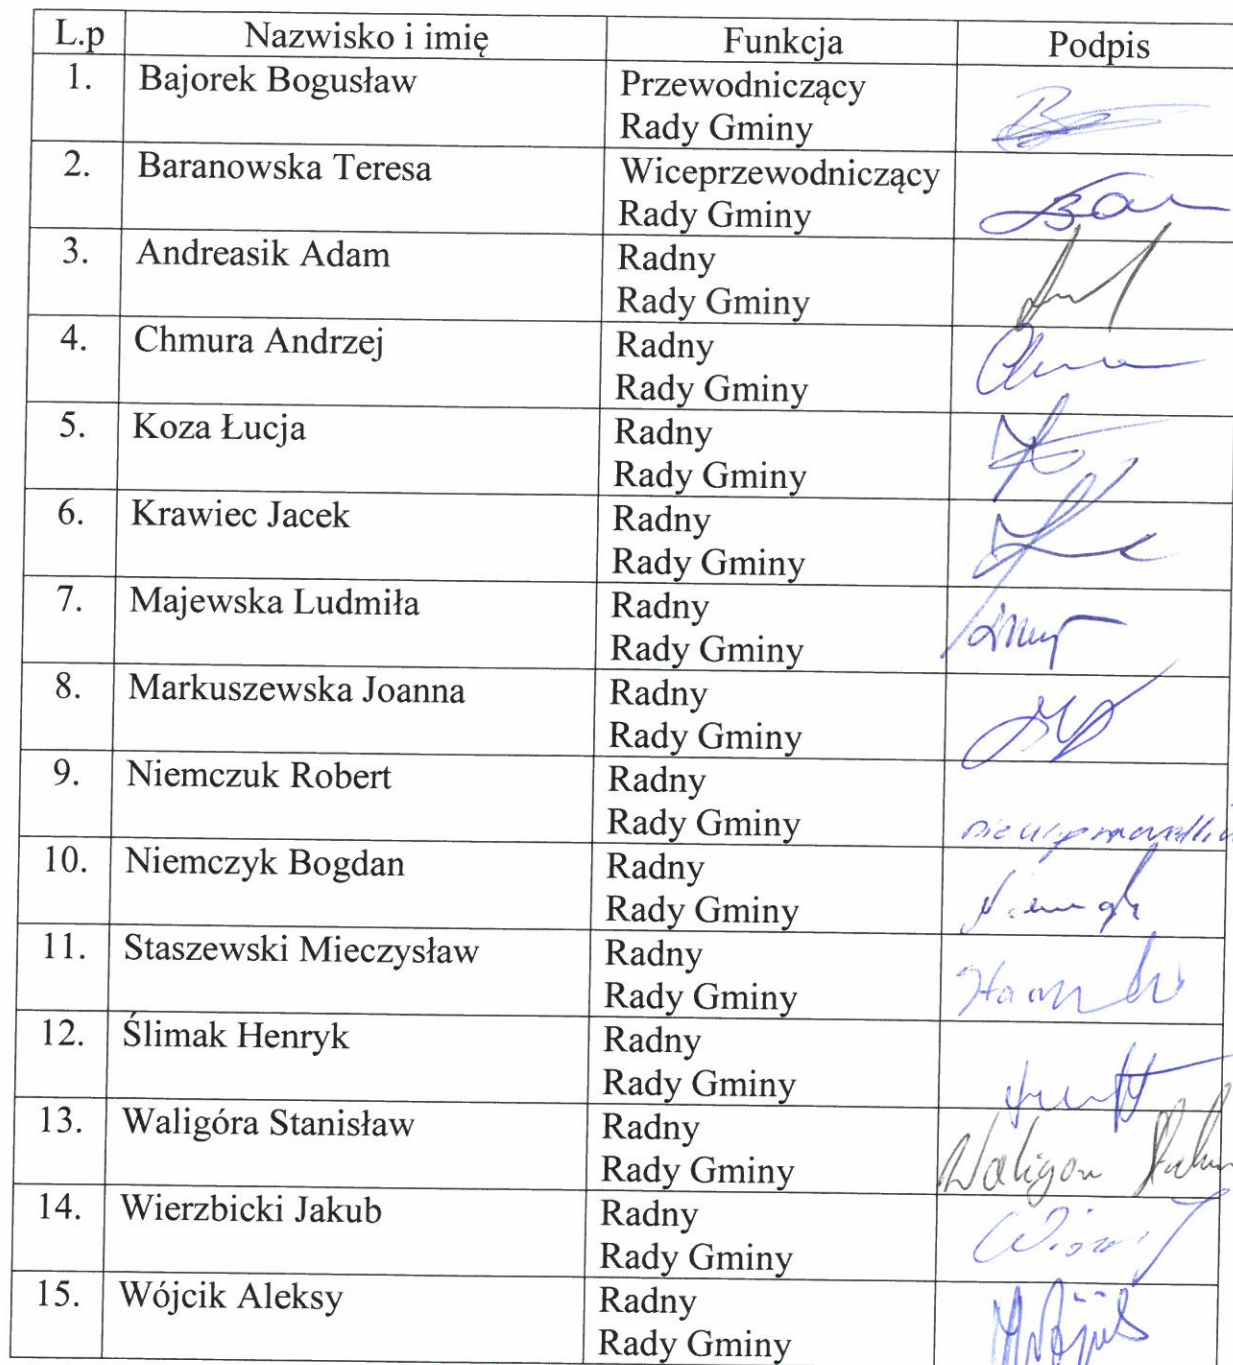 L.p Nazwisko i imię Funkcja Podpis
1. Bajorek Bogusław Przewodniczący
Rady Gminy
2. Baranowska Teresa Wiceprzewodniczący
Rady Gminy
3. Andreasik Adam Radny
Rady Gminy
4. Chmura Andrzej Radny
Rady Gminy
5. Koza Łucja Radny
Rady Gminy
6. Krawiec Jacek Radny
Rady Gminy
7. Majewska Ludmiła Radny
Rady Gminy
8. Markuszewska Joanna Radny
Rady Gminy
9. Niemczuk Robert Radny
Rady Gminy
10. Niemczyk Bogdan Radny
Rady Gminy
11. Staszewski Mieczysław Radny
Rady Gminy
12. Ślimak Henryk Radny
Rady Gminy
13. Waligóra Stanisław Radny
Rady Gminy
14. Wierzbicki Jakub Radny
Rady Gminy
15. Wójcik Aleksy Radny
Rady Gminy